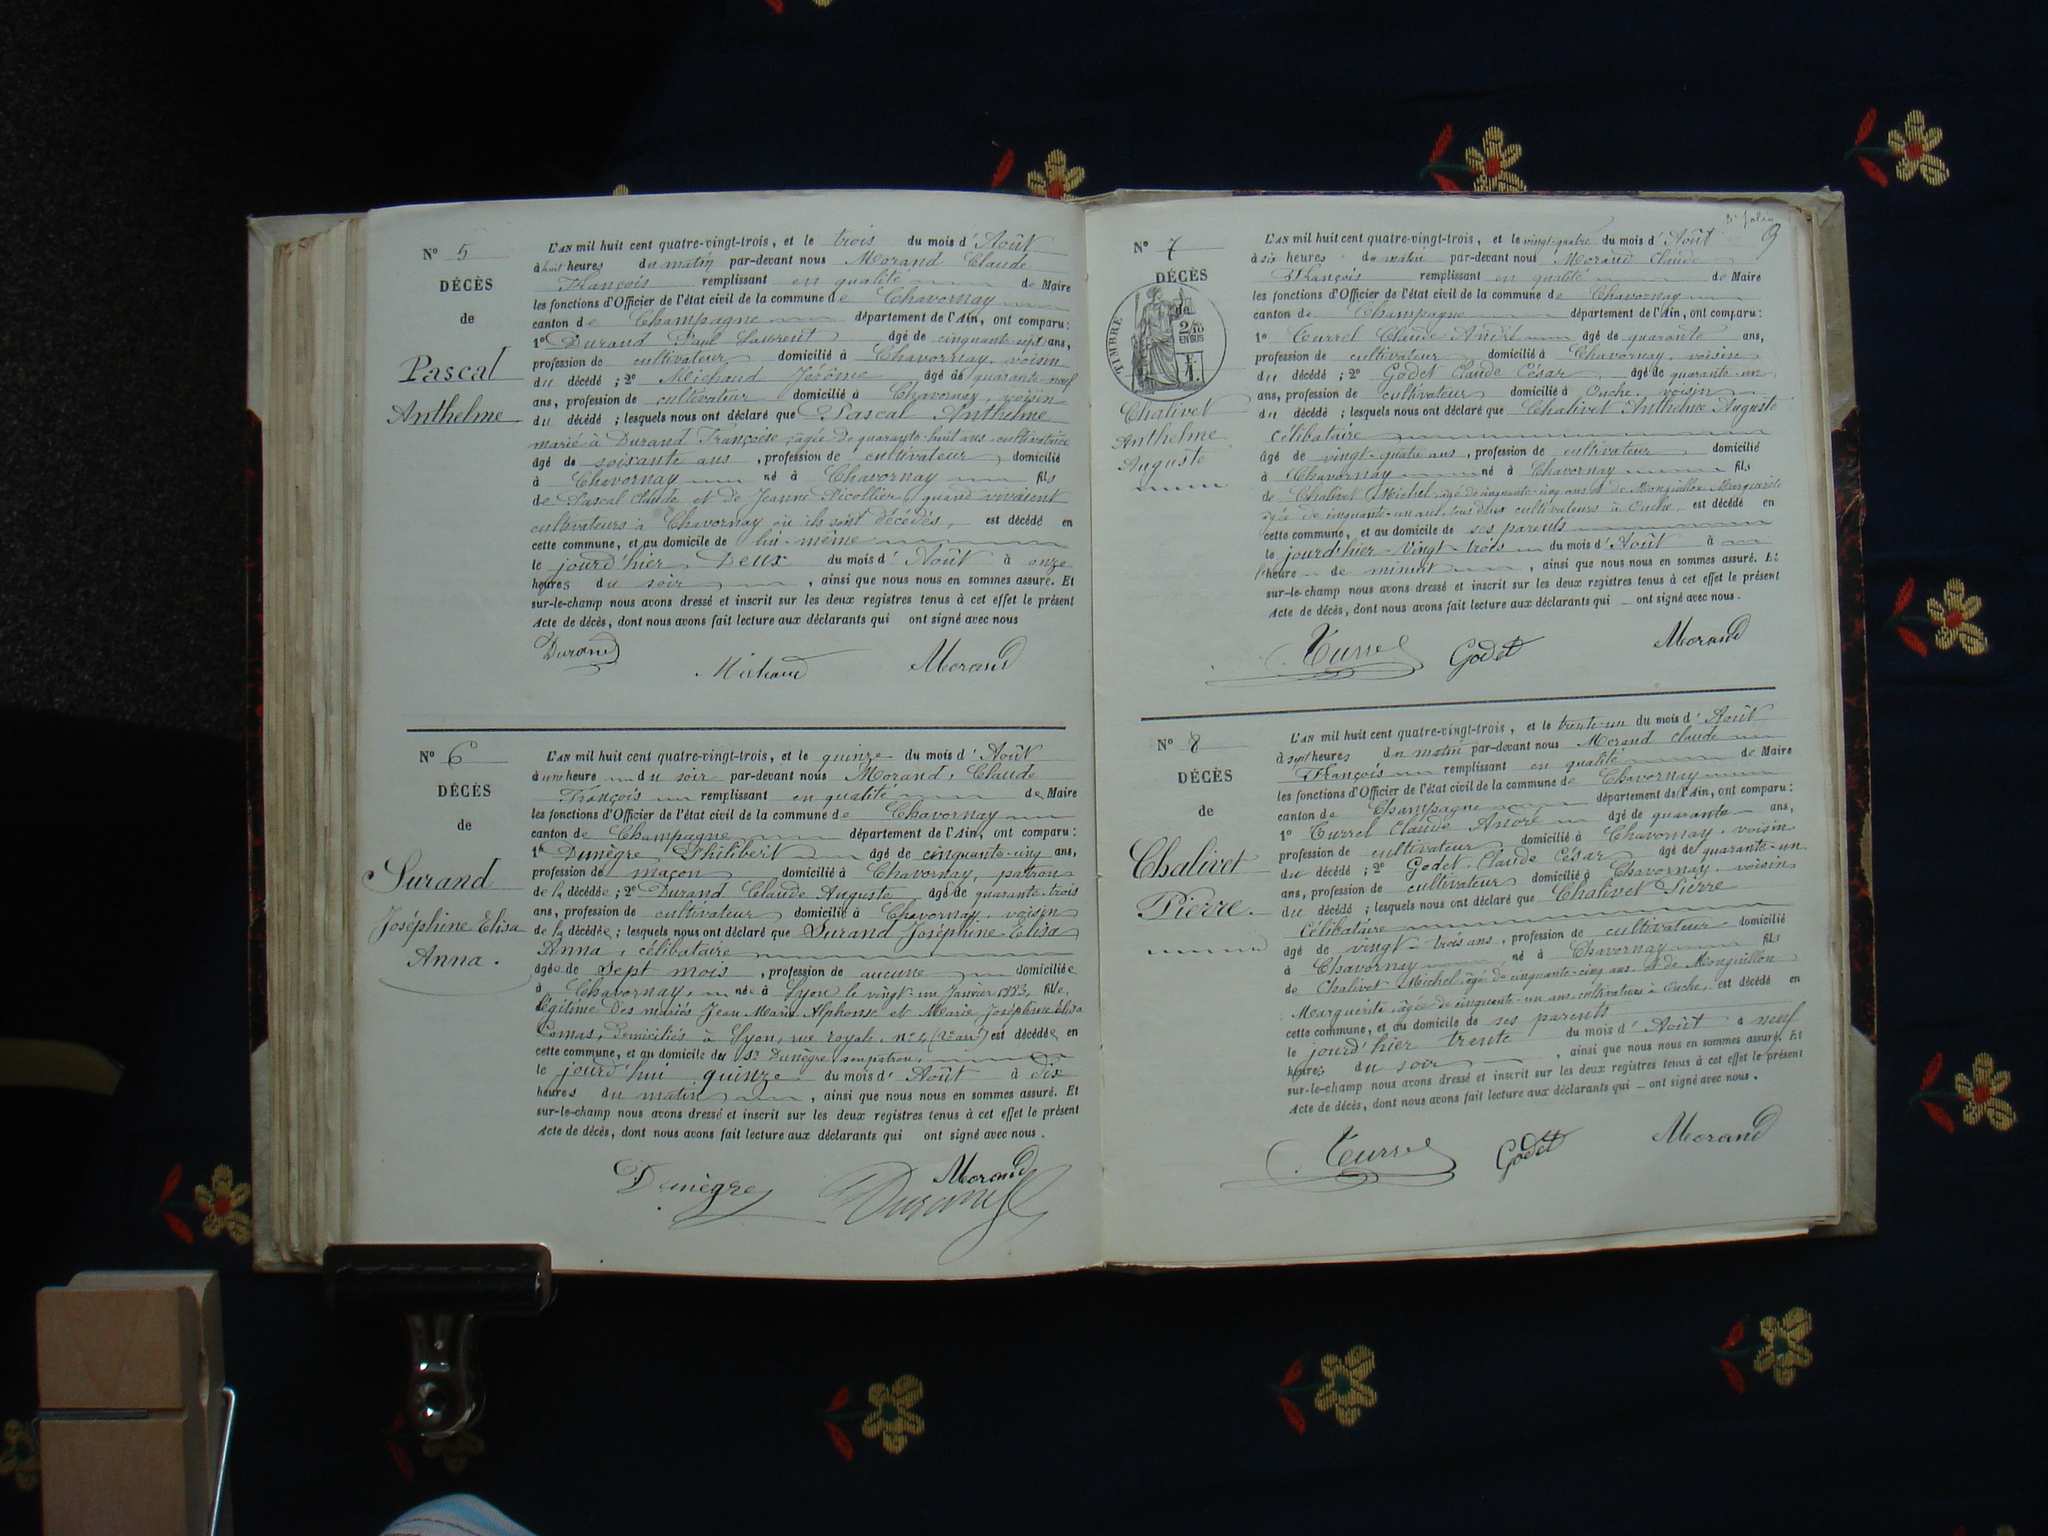 N° 5
DÉCÈS
de
Pascal
Anthelme
L'AN mil huit cent quatre-vingt-trois, et le trois du mois d'Août
à huit heures du matin par-devant nous Morand Claude
François remplissant en qualité de Maire
les fonctions d'Officier de l'état civil de la commune de Chavornay
canton de Champagne département de l'Ain, ont comparu :
1° Durand Paul Laurent âgé de cinquante-sept ans,
profession de cultivateur domicilié à Chavornay, voisin
du décédé ; 2° Michaud Jérôme âgé de quarante-neuf
ans, profession de cultivateur domicilié à Chavornay, voisin
du décédé ; lesquels nous ont déclaré que Pascal Anthelme
marié à Durand Françoise, âgée de quarante-huit ans, cultivatrice
âgé de soixante ans, profession de cultivateur, domicilié
à Chavornay né à Chavornay fils
de Pascal Claude et de Jeanne Picollier, quand vivaient
cultivateurs à Chavornay où ils sont décédés, est décédé en
cette commune, et au domicile de lui-même
le jourd'hier Deux du mois d'Août à onze
heures du soir, ainsi que nous nous en sommes assuré. Et
sur-le-champ nous avons dressé et inscrit sur les deux registres tenus à cet effet le présent
Acte de décès, dont nous avons fait lecture aux déclarants qui ont signé avec nous
Durand Michaud Morand
N° 6
DÉCÈS
de
Durand
Joséphine Elisa
Anna.
L'AN mil huit cent quatre-vingt-trois, et le quinze du mois d'Août
à une heure du soir par-devant nous Morand, Claude
François remplissant en qualité de Maire
les fonctions d'Officier de l'état civil de la commune de Chavornay
canton de Champagne département de l'Ain, ont comparu :
1° Dunègre Philibert âgé de cinquante-cinq ans,
profession de maçon domicilié à Chavornay, patron
de la décédée ; 2° Durand Claude Auguste âgé de quarante-trois
ans, profession de cultivateur domicilié à Chavornay, voisin
de la décédée ; lesquels nous ont déclaré que Durand Joséphine Elisa
Anna, célibataire
âgée de Sept mois, profession de aucune domiciliée
à Chavornay, née à Lyon le vingt-un Janvier 1883, fille
légitime des mariés Jean Marie Alphonse et Marie Joséphine Elisa
Comas, Domiciliés à Lyon, rue royale, n° 4 est décédée en
cette commune, et au domicile du Sr Dunègre son patron,
le jourd'hui quinze du mois d'Août à dix
heures du matin, ainsi que nous nous en sommes assuré. Et
sur-le-champ nous avons dressé et inscrit sur les deux registres tenus à cet effet le présent
Acte de décès, dont nous avons fait lecture aux déclarants qui ont signé avec nous.
Dunègre Durand Morand
folio
9
N° 7
DÉCÈS
de
TIMBRE
2/10
EN SUS
Chalivet
Anthelme
Auguste
L'AN mil huit cent quatre-vingt-trois, et le vingt-quatre du mois d'Août
à six heures du matin par-devant nous Morand Claude
François remplissant en qualité de Maire
les fonctions d'Officier de l'état civil de la commune de Chavornay
canton de Champagne département de l'Ain, ont comparu :
1° Turrel Claude André âgé de quarante ans,
profession de cultivateur domicilié à Chavornay, voisin
du décédé ; 2° Godet Claude César âgé de quarante-un
ans, profession de cultivateur domicilié à Ouche, voisin
du décédé ; lesquels nous ont déclaré que Chalivet Anthelme Auguste
célibataire
âgé de vingt-quatre ans, profession de cultivateur domicilié
à Chavornay né à Chavornay fils
de Chalivet Michel, âgé de cinquante-cinq ans et de Monguillon Marguerite
âgée de cinquante-un ans, tous deux cultivateurs à Ouche, est décédé en
cette commune, et au domicile de ses parents
le jourd'hier Vingt-trois du mois d'Août à
l'heure de minuit, ainsi que nous nous en sommes assuré. Et
sur-le-champ nous avons dressé et inscrit sur les deux registres tenus à cet effet le présent
Acte de décès, dont nous avons fait lecture aux déclarants qui ont signé avec nous.
Turrel Godet Morand
N° 8
DÉCÈS
de
Chalivet
Pierre.
L'AN mil huit cent quatre-vingt-trois, et le trente-un du mois d'Août
à sept heures du matin par-devant nous Morand Claude
François remplissant en qualité de Maire
les fonctions d'Officier de l'état civil de la commune de Chavornay
canton de Champagne département de l'Ain, ont comparu :
1° Turrel Claude André âgé de quarante ans,
profession de cultivateur domicilié à Chavornay, voisin
du décédé ; 2° Godet Claude César âgé de quarante-un
ans, profession de cultivateur domicilié à Chavornay, voisin
du décédé ; lesquels nous ont déclaré que Chalivet Pierre
Célibataire
âgé de vingt-trois ans, profession de cultivateur domicilié
à Chavornay né à Chavornay fils
de Chalivet Michel âgé de cinquante-cinq ans et de Monguillon
Marguerite âgée de cinquante-un ans, cultivateurs à Ouche, est décédé en
cette commune, et au domicile de ses parents
le jourd'hier trente du mois d'Août à neuf
heures du soir, ainsi que nous nous en sommes assuré. Et
sur-le-champ nous avons dressé et inscrit sur les deux registres tenus à cet effet le présent
Acte de décès, dont nous avons fait lecture aux déclarants qui ont signé avec nous.
Turrel Godet Morand